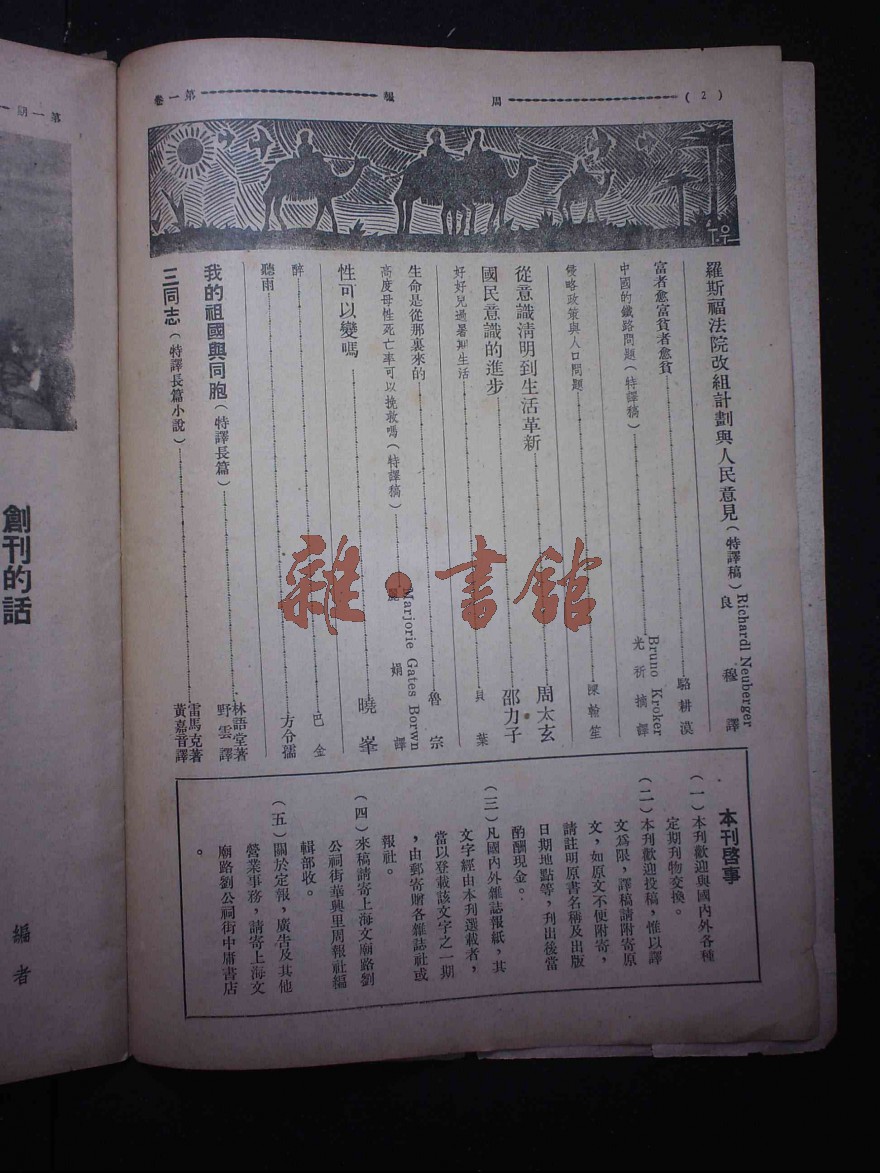 (2)
周
報
第一卷
羅斯福法院改組計劃與人民意見(特譯稿) Richardl Neuberger
良穆譯
富者愈富貧者愈貧 駱耕漠
中國的鐵路問題(特譯稿) Bruno Kroker
光祈摘譯
侵略政策與人口問題 陳翰笙
從意識清明到生活革新 周太玄
國民意識的進步 邵力子
好好兒過暑期生活 貝葉
生命是從那裏來的 魯宗
高度母性死亡率可以挽救嗎(特譯稿) Marjorie Gates Borwn
娟譯
性可以變嗎 曉峯
醉 巴金
聽雨 方令孺
我的祖國與同胞(特譯長篇) 林語堂著
野雲譯
三同志(特譯長篇小說) 雷馬克著
黃嘉音譯
本刊啓事
(一)本刊歡迎與國內外各種
定期刊物交換。
(二)本刊歡迎投稿,惟以譯
文爲限,譯稿請附寄原
文,如原文不便附寄,
請註明原書名稱及出版
日期地點等,刊出後當
酌酬現金。
(三)凡國內外雜誌報紙,其
文字經由本刊選載者,
當以登載該文字之一期
,由郵寄贈各雜誌社或
報社。
(四)來稿請寄上海文廟路劉
公祠街華興里周報社編
輯部收。
(五)關於定報,廣告及其他
營業事務,請寄上海文
廟路劉公祠街中庸書店
。
第一期
創刊的話
編者
雜·書館